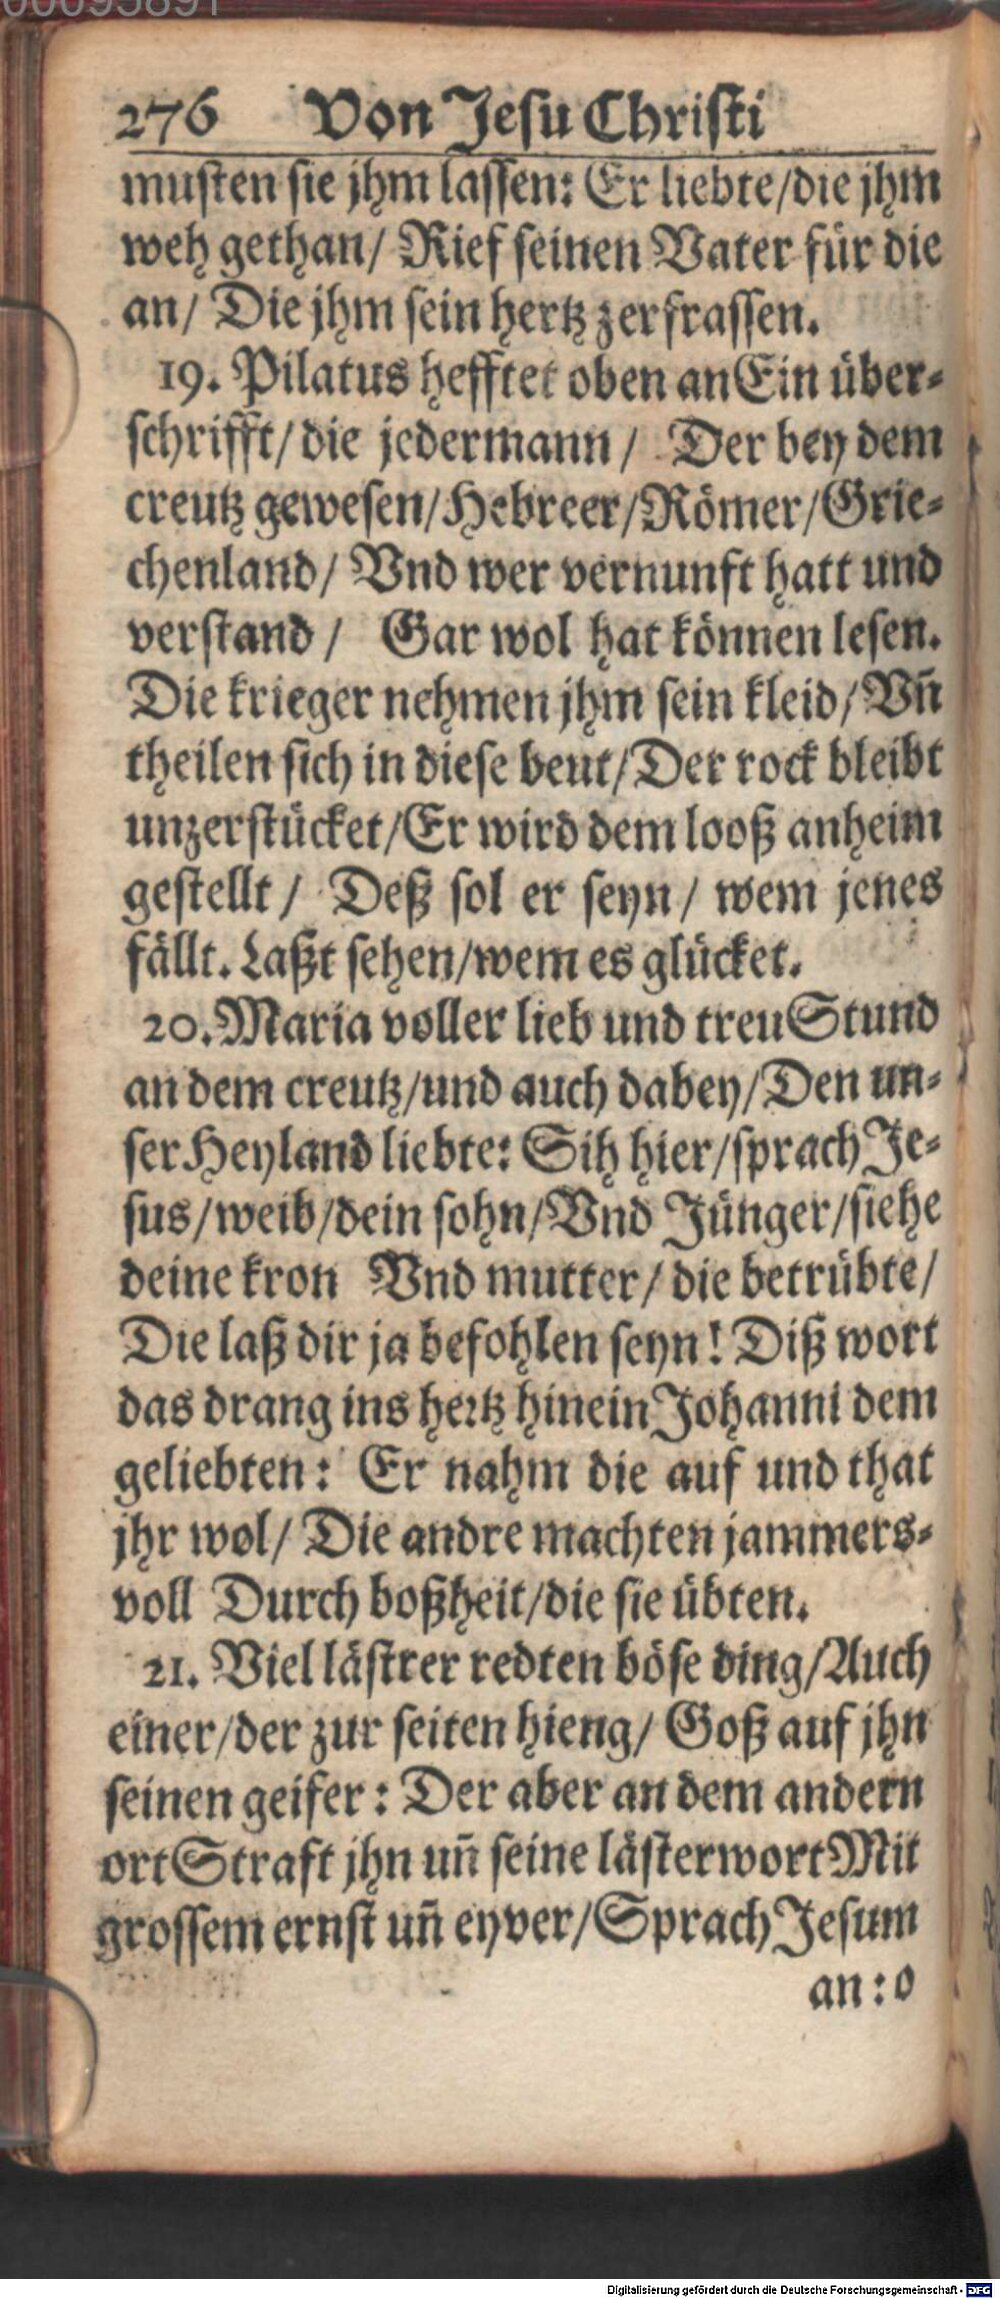 00095891
276 Von Jesu Christi
musten sie jhm lassen: Er liebte/die jhm
weh gethan/ Rief seinen Vater für die
an/ Die jhm sein hertz zerfrassen.
19. Pilatus hefftet oben an Ein über-
schrifft/die jedermann/ Der bey dem
creutz gewesen/Hebreer/Römer/Grie-
chenland/ Vnd wer vernunft hatt und
verstand/ Gar wol hat können lesen.
Die krieger nehmen jhm sein kleid/Vñ
theilen sich in diese beut/Der rock bleibt
unzerstücket/Er wird dem looß anheim
gestellt/ Deß sol er seyn/ wem jenes
fällt. Laßt sehen/wem es glücket.
20. Maria voller lieb und treu Stund
an dem creutz/und auch dabey/Den un-
ser Heyland liebte: Sih hier/sprach Je-
sus/weib/dein sohn/Vnd Jünger/siehe
deine kron Vnd mutter/die betrübte/
Die laß dir ja befohlen seyn! Diß wort
das drang ins hertz hinein Johanni dem
geliebten: Er nahm die auf und that
jhr wol/ Die andre machten jammers-
voll Durch boßheit/die sie übten.
21. Viel lästrer redten böse ding/Auch
einer/der zur seiten hieng/ Goß auf jhn
seinen geifer: Der aber an dem andern
ort Straft jhn uñ seine lästerwort Mit
grossem ernst uñ eyver/Sprach Jesum
an: o
Digitalisierung gefördert durch die Deutsche Forschungsgemeinschaft - DFG